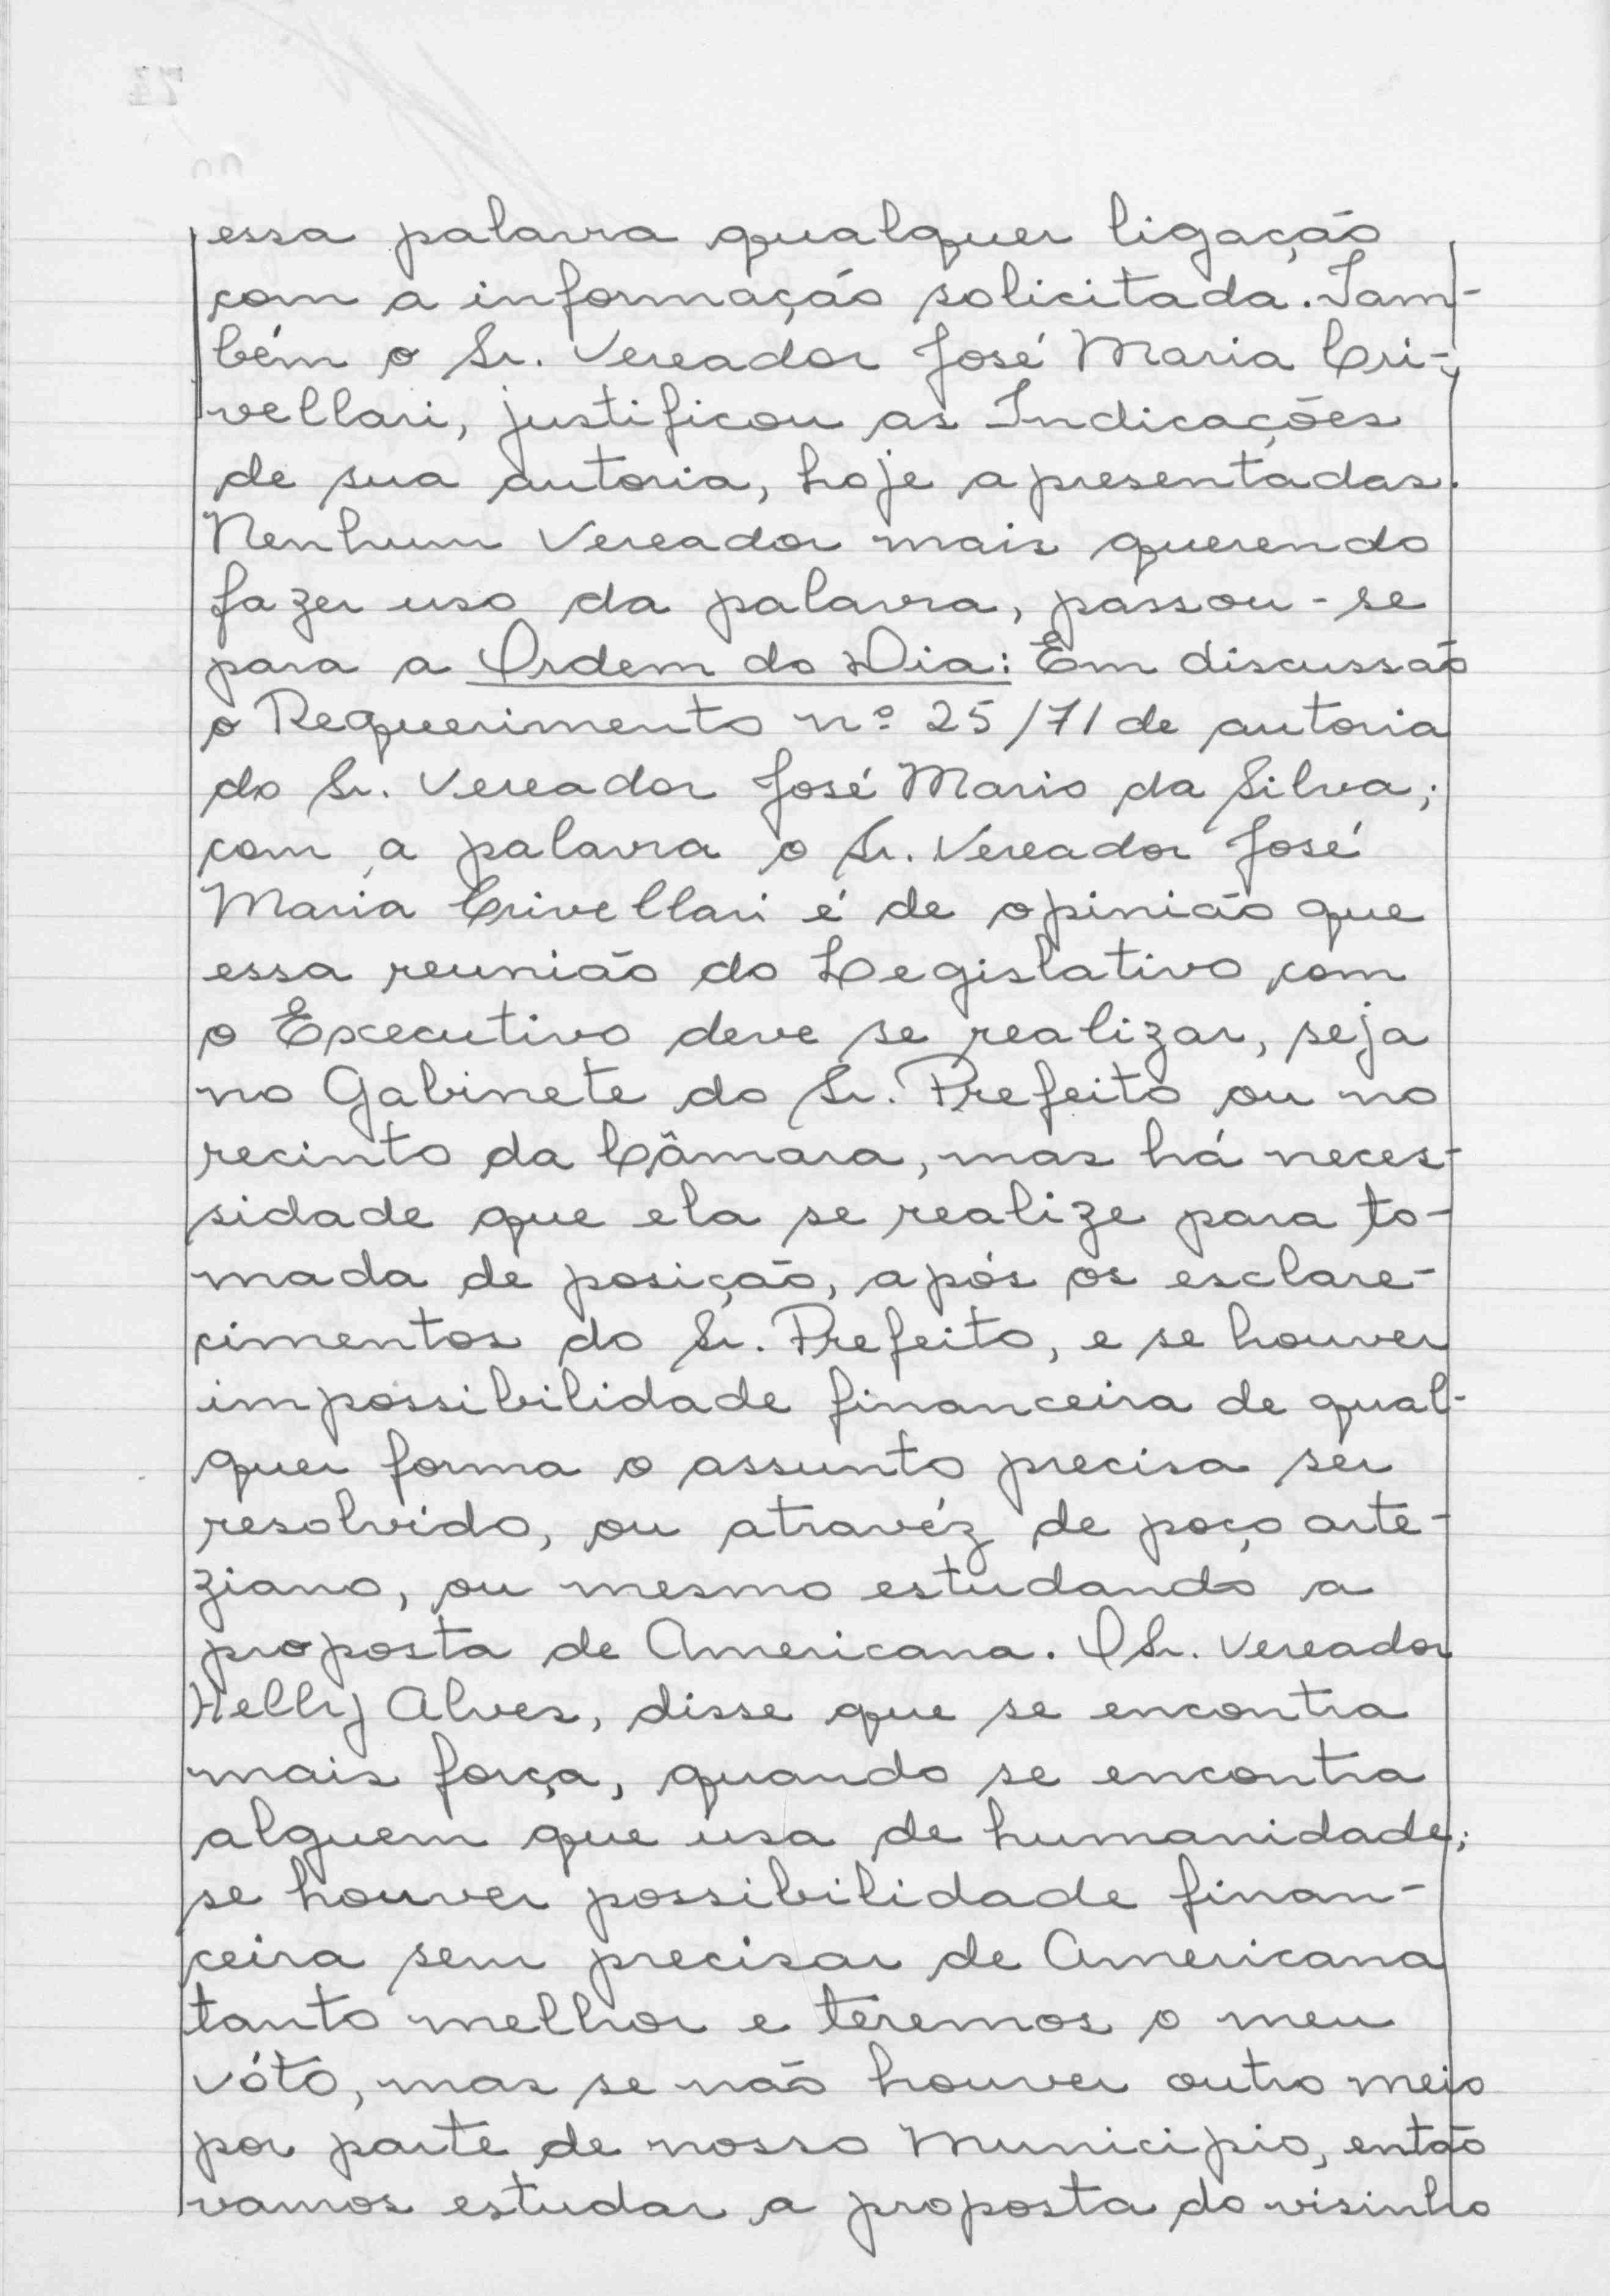 essa palavra qualquer ligação
com a informação solicitada. Tam-
bém o Sr. Vereador José Maria Cri-
vellari, justificou as Indicações
de sua autoria, hoje apresentadas.
Nenhum Vereador mais querendo
fazer uso da palavra, passou-se
para a Ordem do Dia: Em discussão
o Requerimento nº 25/71 de autoria
do Sr. Vereador José Mario da Silva;
com a palavra o Sr. Vereador José
Maria Crivellari é de opinião que
essa reunião do Legislativo com
o Executivo deve se realizar, seja
no Gabinete do Sr. Prefeito ou no
recinto da Câmara, mas há neces-
sidade que ela se realize para to-
mada de posição, após os esclare-
cimentos do Sr. Prefeito, e se houver
impossibilidade financeira de qual-
quer forma o assunto precisa ser
resolvido, ou atravéz de poço arte-
ziano, ou mesmo estudando a
proposta de Americana. O Sr. Vereador
Helly Alves, disse que se encontra
mais força, quando se encontra
alguem que usa de humanidade;
se houver possibilidade finan-
ceira sem precisar de Americana
tanto melhor e teremos o meu
vóto, mas se não houver outro meio
por parte de nosso Municipio, então
vamos estudar a proposta do visinho